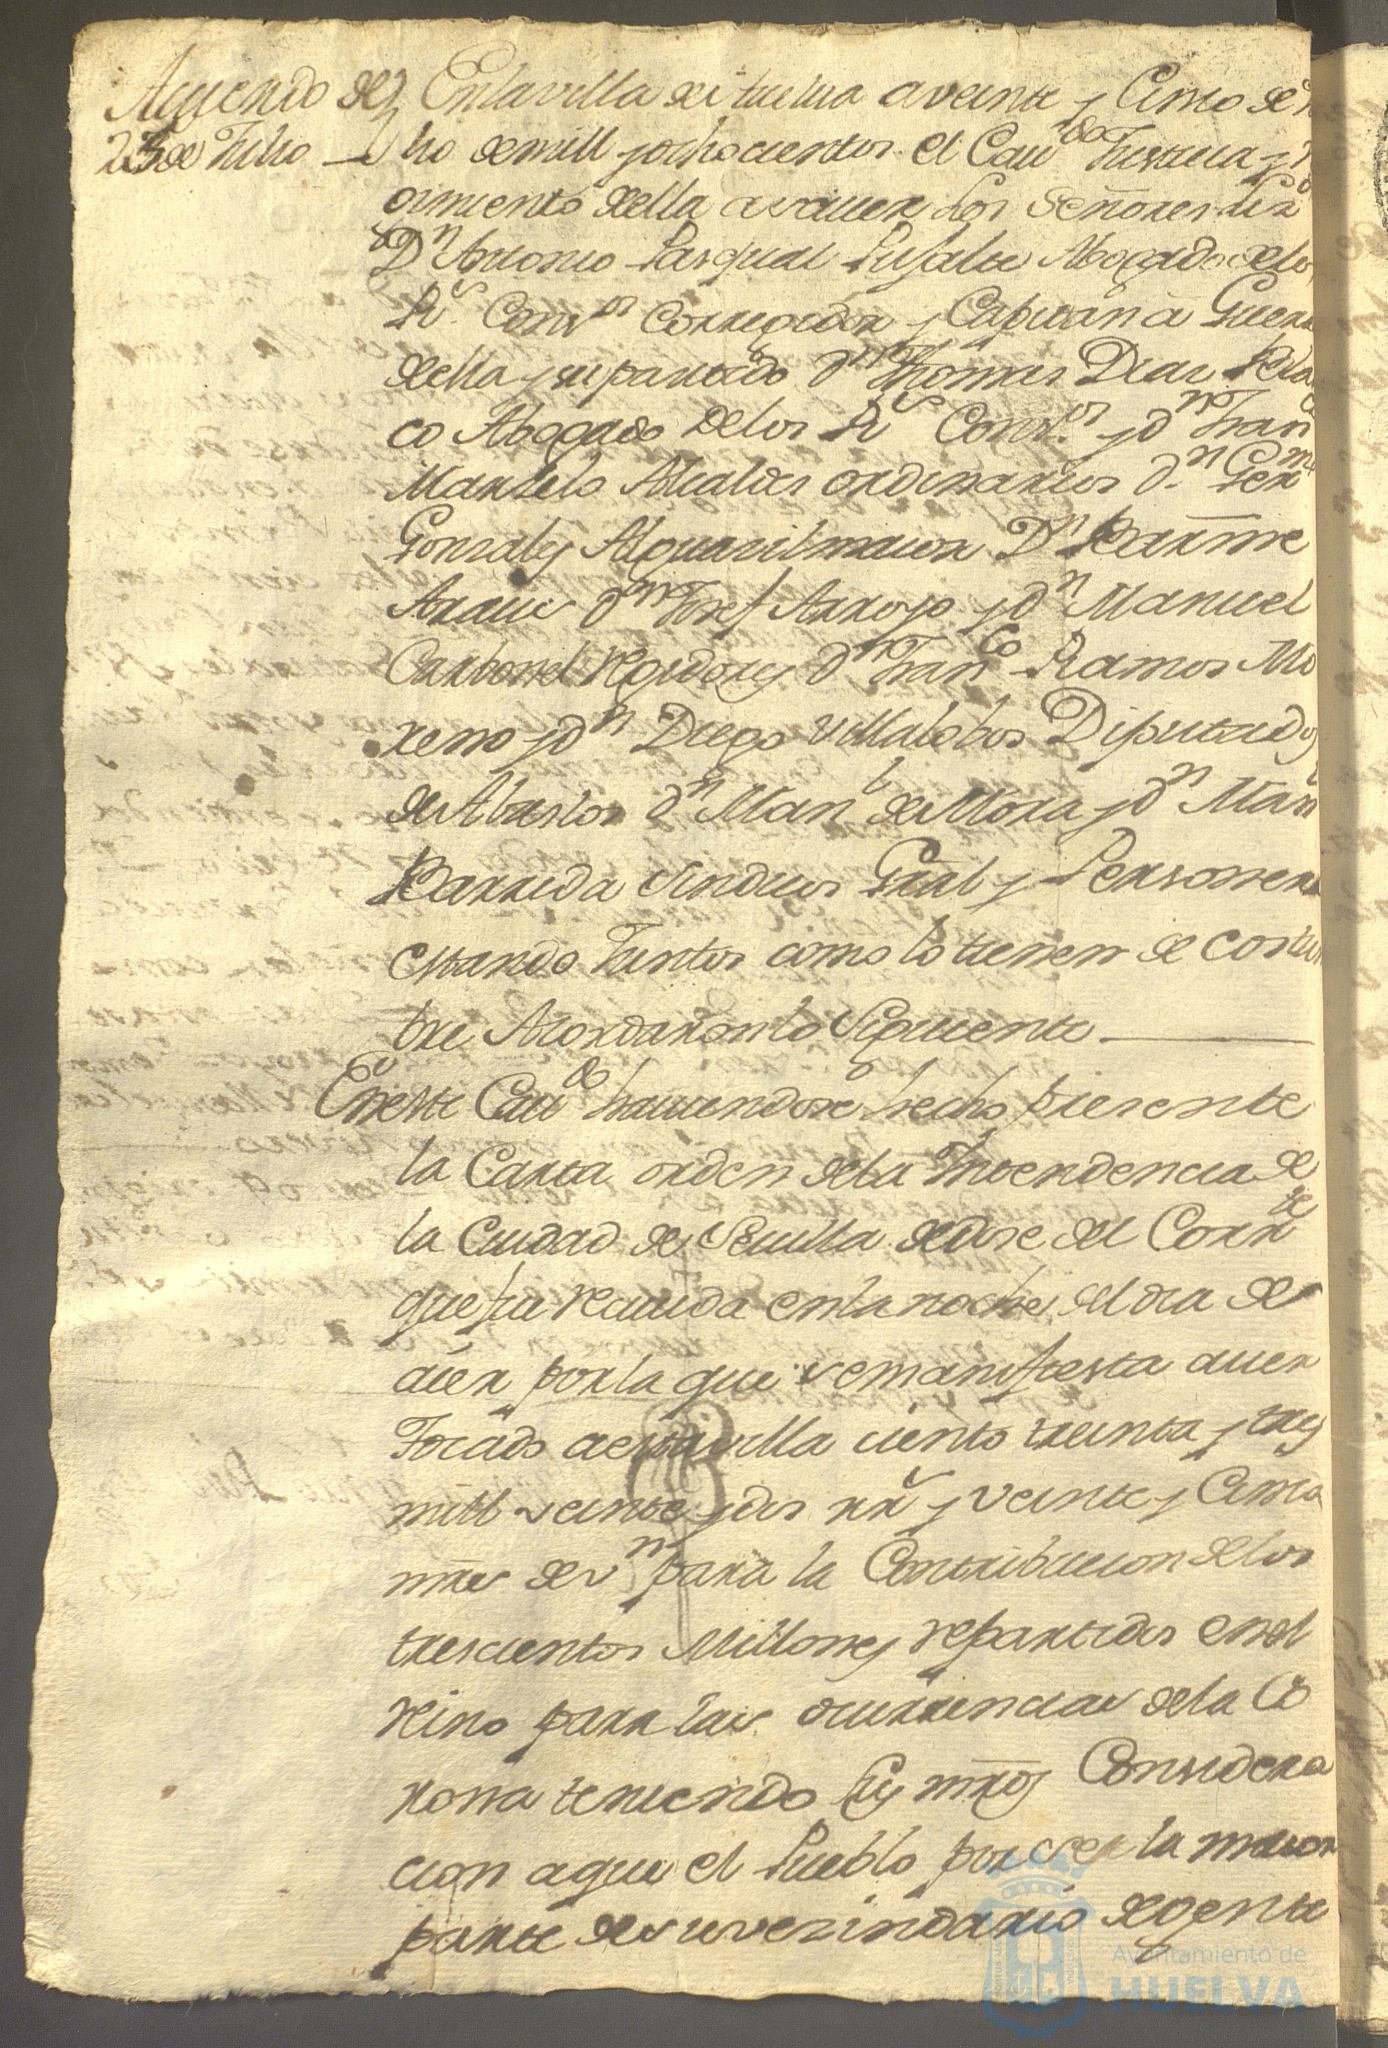 Acuerdo de
25 de Julio
En la villa de Huelva a veinte y Cinco de
lio de mill y ochocientos el Cavdo Justicia y
gimiento della a saver los Señores
Dn Antonio Pasqual Pusalte Abogado de los
Rs. Consos Corregidor y Capitan a Guerra
della y su partido Dn Thomas Diaz Blan
co Abogado de los Rs Consos y dn Fran
Marzelo Alcaldes ordinarios Dn Germo
Gonzalez Alguacil maior Dn Barme
Dn Josef Arroyo y dn Manuel
Carbonel Regidores dn Franco Ramos Mo
reno y dn Diego Villalobos Diputados
de Abastos dn Manl de Mora y dn Manl
Barreda Sindicos Gral y Personero
estando Juntos como lo tienen de costum
bre Acordaron lo Siguiente
En este Cavdo haviendose hecho presente
la Carta orden de la Intendencia de
la Ciudad de Sevilla de dose del Corrte
que fue recivida en la noche del dia de
aier por la que se manifiesta aver
Tocado a esta villa ciento treinta y tres
mill veinte y dos rrs y veinte y Cinco
mrs de vn para la Contribucion de los
trescientos Millones repartidos en el
reino para las ocurrencias de la Co
rona teniendo sus mrds Considera
cion a que el Pueblo por ser la maior
parte de su vezindario de gente
Ayuntamiento de
HUELVA